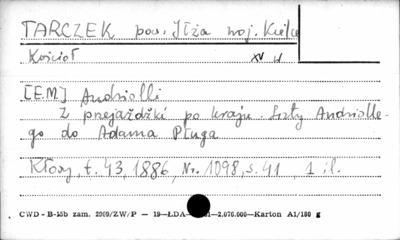 TARCZEK pow. Iłża woj. Kielce
Kościół XV w
[E.M] Andriolli
Z przejażdżki po kraju. Listy Andriolle-
go do Adama Pługa
Kłosy, t. 43, 1886, Nr. 1098, s. 41 1 il.
CWD - B-15b zam. 2909/ZW/P — 19—ŁDA— —2.070.000—Karton A1/180 g